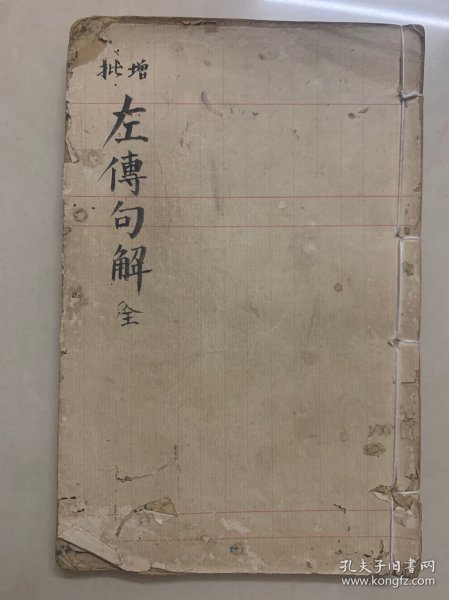 增批
左傳句解
全
孔夫子旧书网
www.kongfz.com